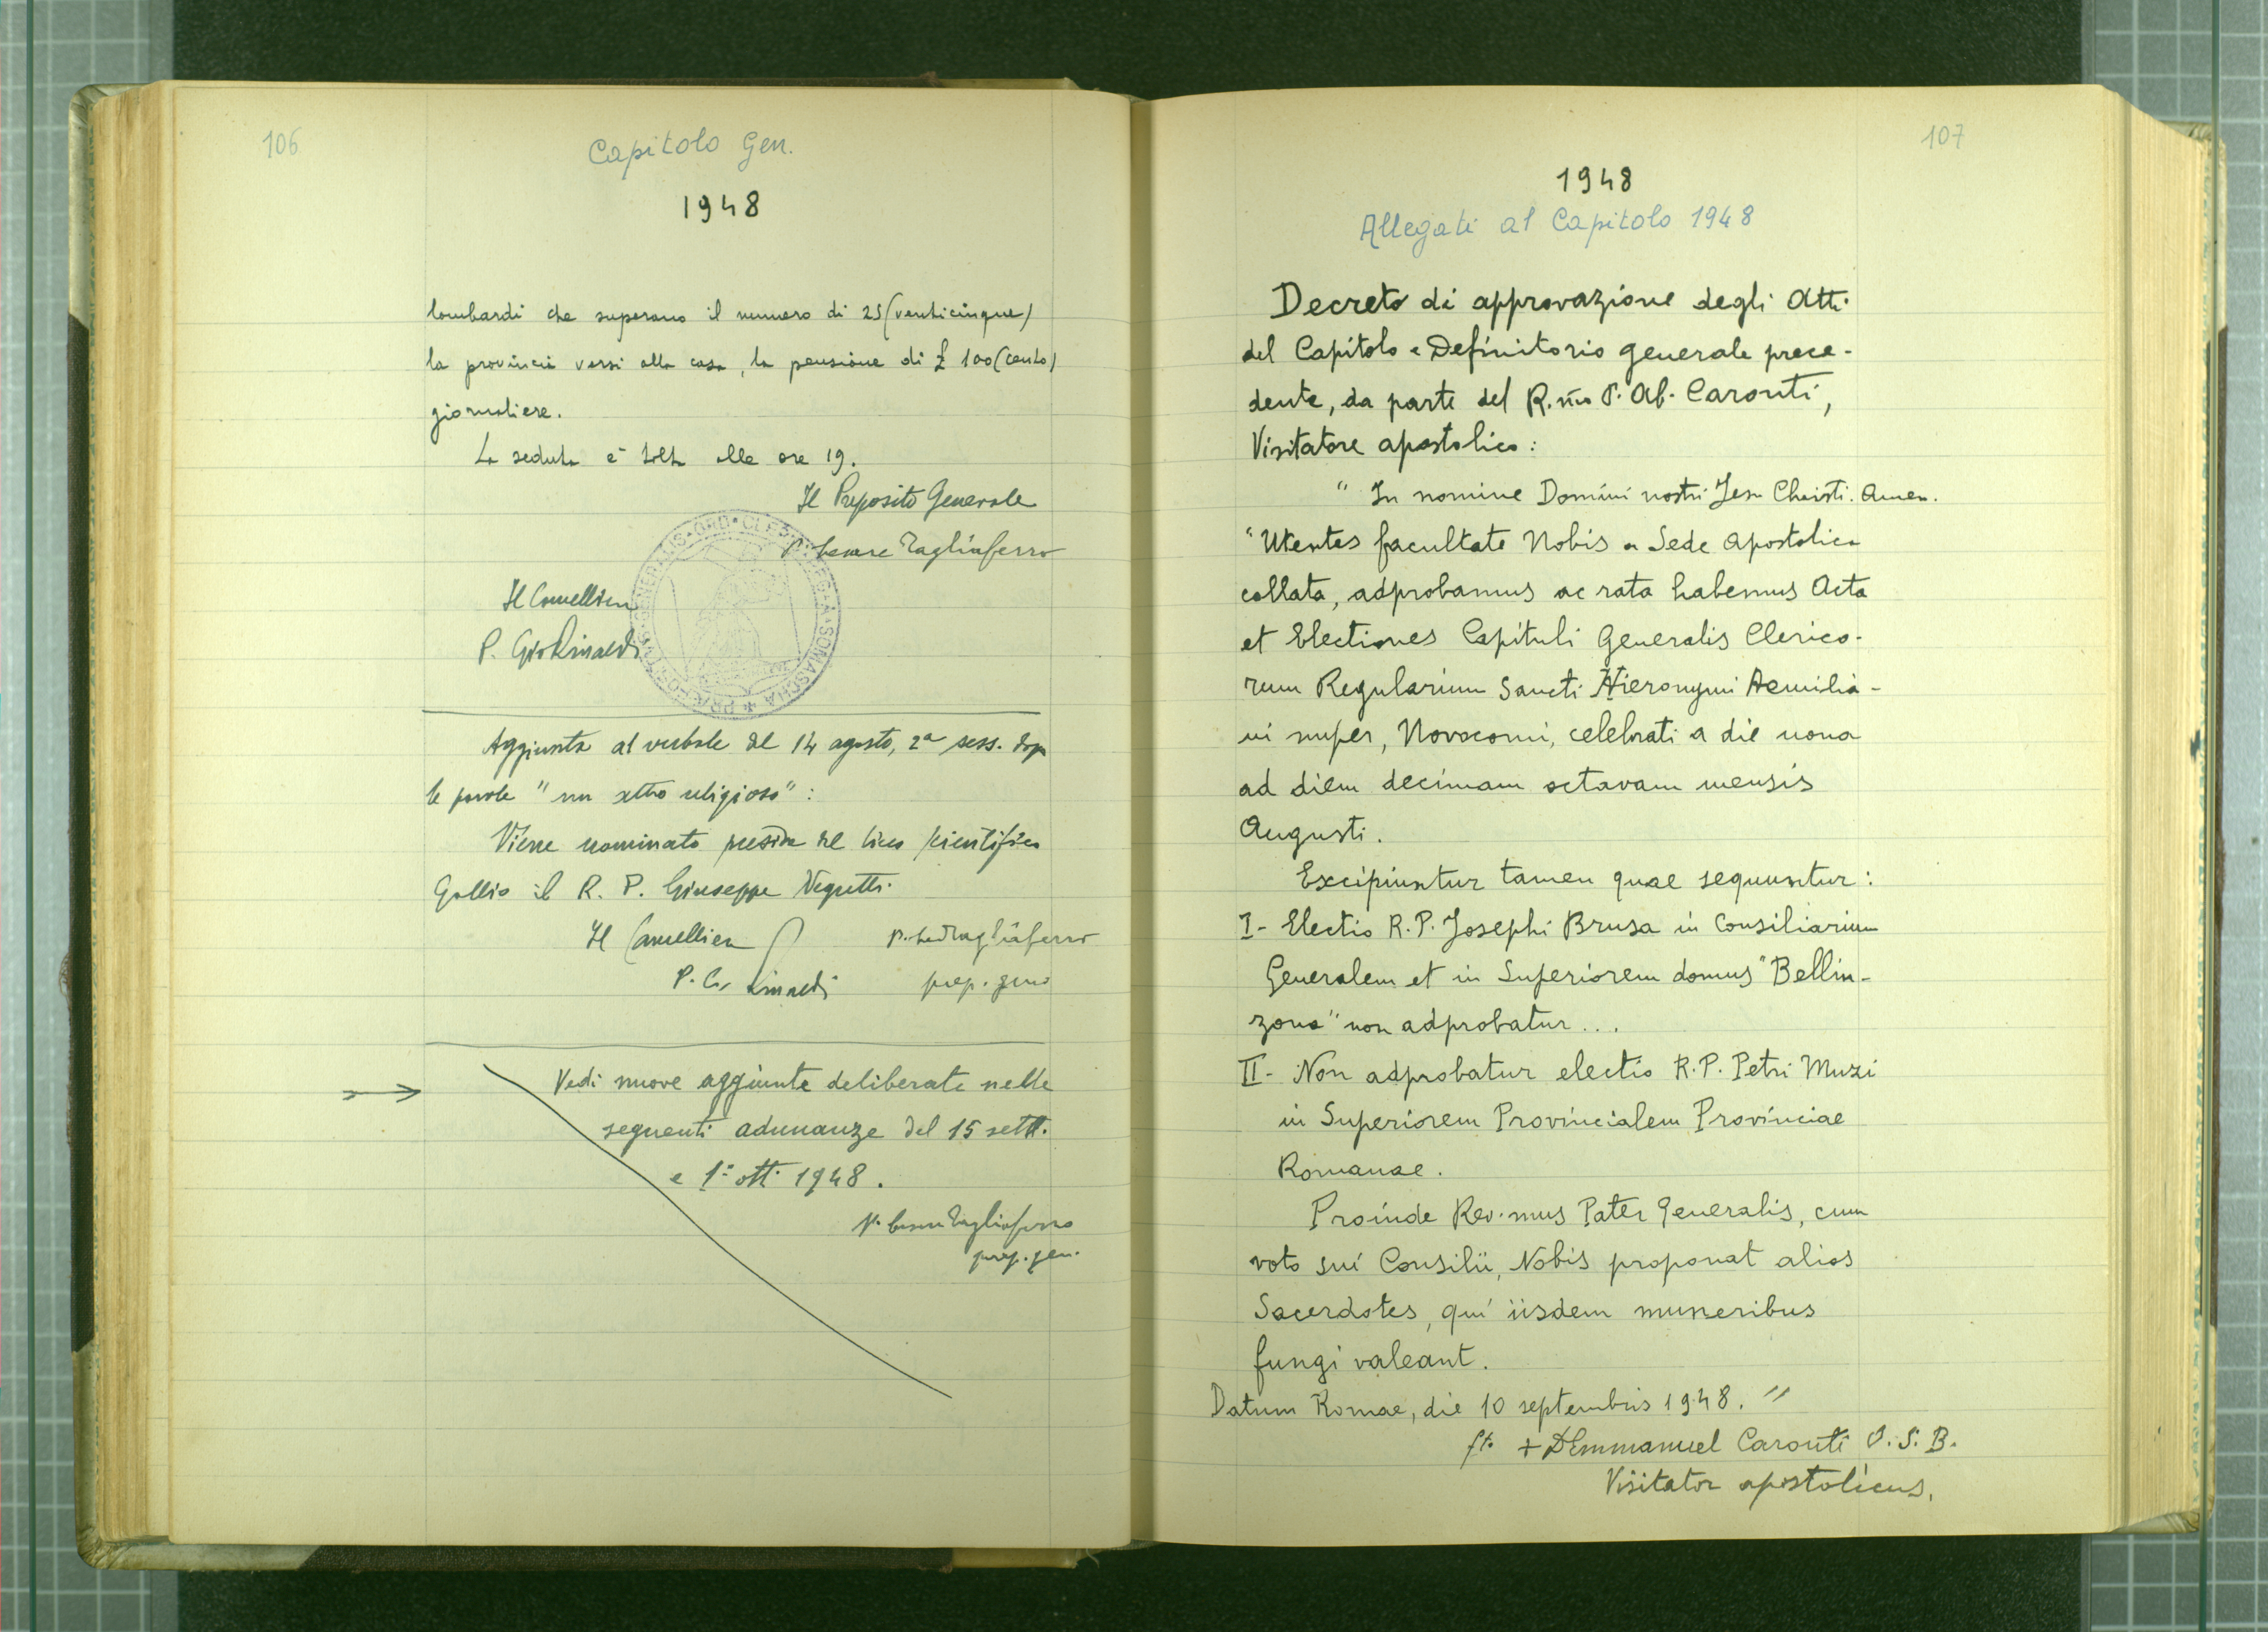 106
Capitolo Gen.
1948
lombardi che superano il numero di 25 (venticinque)
la provincia versi alla casa, la pensione di £ 100 (cento)
giornaliere.
La seduta è tolta alle ore 19.
Il Preposito Generale
P. Cesare Tagliaferro
Il Cancelliere
P. Gio Rinaldi
Aggiunta al verbale del 14 agosto, 2ª sess. dopo
le parole "un altro religioso":
Viene nominato preside del liceo scientifico
Gallio il R. P. Giuseppe Vegetti.
Il Cancelliere
P. Ces Tagliaferro
P. G. Rinaldi
prep. gen.
Vedi nuove aggiunte deliberate nelle
seguenti adunanze del 15 sett.
e 1º ott. 1948.
P. Cesare Tagliaferro
prep. gen.
107
1948
Allegati al Capitolo 1948
Decreto di approvazione degli Atti
del Capitolo e Definitorio generale prece-
dente, da parte del R.mo P. Ab. Caronti,
Visitatore apostolico:
" In nomine Domini nostri Jesu Christi. Amen.
"Utentes facultate Nobis a Sede Apostolica
collata, adprobamus ac rata habemus Acta
et Electiones Capituli Generalis Clerico-
rum Regularium Sancti Hieronymi Aemilia-
ni nuper, Novocomi, celebrati a die nona
ad diem decimam octavam mensis
Augusti.
Excipiuntur tamen quae sequuntur:
I- Electio R.P. Josephi Brusa in Consiliarium
Generalem et in Superiorem domus "Bellin-
zona" non adprobatur...
II- Non adprobatur electio R.P. Petri Muzi
in Superiorem Provincialem Provinciae
Romanae.
Proinde Rev.mus Pater Generalis, cum
voto sui Consilii, Nobis proponat alios
Sacerdotes, qui iisdem muneribus
fungi valeant.
Datum Romae, die 10 septembris 1948. "
ft. + D Emmanuel Caronti O.S.B.
Visitator apostolicus.